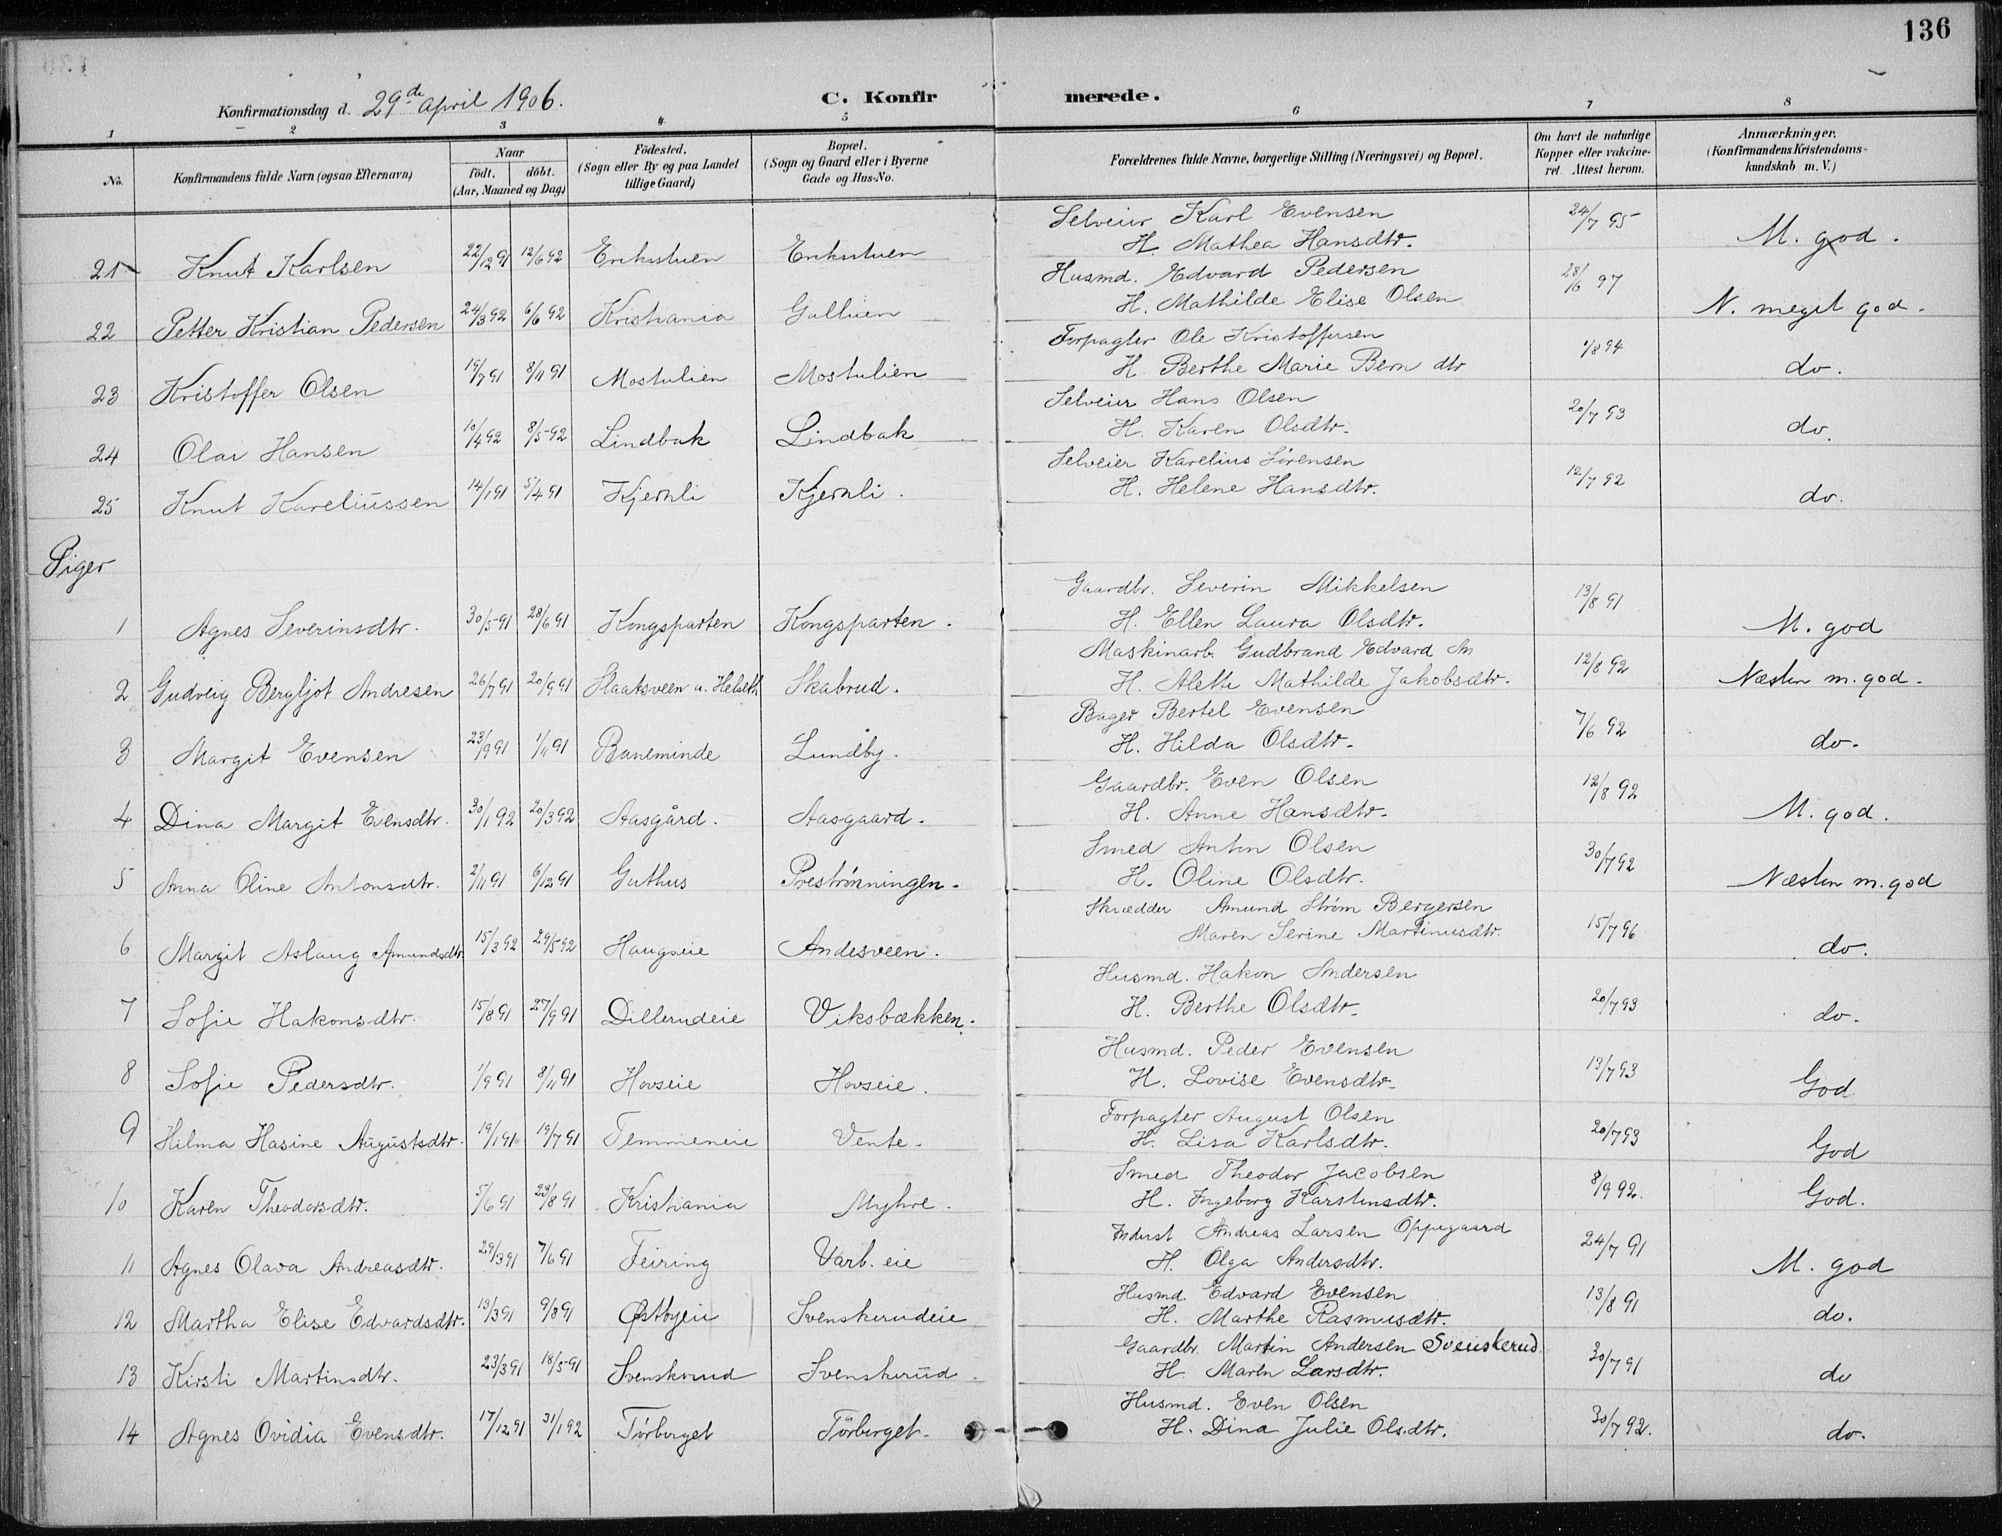 136
Konfirmationsdag d. 29de April 1906.
C. Konfirmerede.
1 2 3 4 5 6 7 8
No. Konfirmandens fulde Navn (ogsaa Efternavn) Naar födt. döbt. (Aar, Maaned og Dag) Födested. (Sogn eller By og paa Landet tillige Gaard) Bopæl. (Sogn og Gaard eller i Byerne Gade og Hus-No. Forældrenes fulde Navne, borgerlige Stilling (Næringsvei) og Bopæl. Om havt de naturlige Kopper eller vakcineret. Attest herom. Anmærkninger. (Konfirmandens Kristendomskundskab m. V.)
Selveier Karl Evensen
21 Knut Karlsen 22/12 91 12/6 92 Eriksstuen Eriksstuen H. Mathea Hansdtr. 24/7 95 M. god.
Husmd. Edvard Pedersen
22 Petter Kristian Pedersen 24/3 92 6/6 92 Kristiania Gullien H. Mathilde Elise Olsen 28/6 97 N. meget god.
Forpagter Ole Kristoffersen
23 Kristoffer Olsen 19/7 91 8/11 91 Mostulien Mostulien H. Berthe Marie Bern dtr 1/8 94 do.
Selveier Hans Olsen
24 Olai Hansen 10/4 92 8/5 92 Lindbak Lindbak H. Karen Olsdtr. 20/7 93 do.
Selveier Karelius Sørensen
25 Knut Kareliussen 14/1 91 5/4 91 Kjernli Kjernli. H. Helene Hansdtr. 12/7 92 do.
Piger
Gaardbr. Severin Mikkelsen
1 Agnes Severinsdtr. 30/5 91 28/6 91 Kongsparten Kongsparten. H. Ellen Laura Olsdtr. 13/8 91 M. god
Maskinarb. Gudbrand Edvard An
2 Gudveig Bergljot Andresen 26/7 91 20/9 91 Slaatsveen u. Helseth Skabrud. H. Alette Mathilde Jakobsdtr. 12/8 92 Næsten m. god.
Bager Bertel Evensen
3 Margit Evensen 23/9 91 1/11 91 Baneminde Lundby. H. Hilda Olsdtr. 7/6 92 do.
Gaardbr. Even Olsen
4 Dina Margit Evensdtr. 30/1 92 20/3 92 Aasgård. Aasgaard. H. Anne Hansdtr. 12/8 92 M. god.
Smed Anton Olsen
5 Anna Oline Antonsdtr. 2/11 91 6/12 91 Guthus Prestrønningen. H. Oline Olsdtr. 30/7 92 Næsten m. god
Skrædder Amund Strøm Bergersen
6 Margit Aslaug Amundsdtr. 15/3 92 29/5 92 Haugseie Andesveen. Maren Serine Martinusdtr. 15/7 96 do.
Husmd. Hakon Andersen
7 Sofie Hakonsdtr. 15/8 91 27/9 91 Dillerudeie Viksbækken. H. Berthe Olsdtr. 20/7 93 do.
Husmd. Peder Evensen
8 Sofie Pedersdtr. 1/9 91 8/11 91 Hovseie Hovseie. H. Lovise Evensdtr. 13/7 93 God
Forpagter August Olsen
9 Hilma Hasine Augustsdtr. 19/1 91 19/7 91 Temmeneie Vente. H. Lisa Karlsdtr. 20/7 93 God
Smed Theodor Jacobsen
10 Karen Theodorsdtr. 5/6 91 23/8 91 Kristiania Myhre. H. Ingeborg Karstensdtr. 8/9 92. God.
Inderst Andreas Larsen Oppegaard
11 Agnes Olava Andreasdtr. 29/3 91 7/6 91 Feiring Varb. eie H. Olga Andersdtr. 24/7 91 M. god
Husmd. Edvard Evensen
12 Martha Elise Edvardsdtr. 13/3 91 9/8 91 Østbyeie Svenskerudeie H. Marthe Rasmusdtr. 13/8 91 do.
Gaardbr. Martin Andersen Svenskerud.
13 Kirsti Martinsdtr. 23/3 91 18/5 91 Svenskerud Svenskerud. H. Maren Larsdtr. 30/7 91 do
Husmd. Even Olsen
14 Agnes Ovidia Evensdtr. 17/12 91 31/1 92 Tørberget Tørberget. H. Dina Julie Olsdtr. 30/7 92. do.